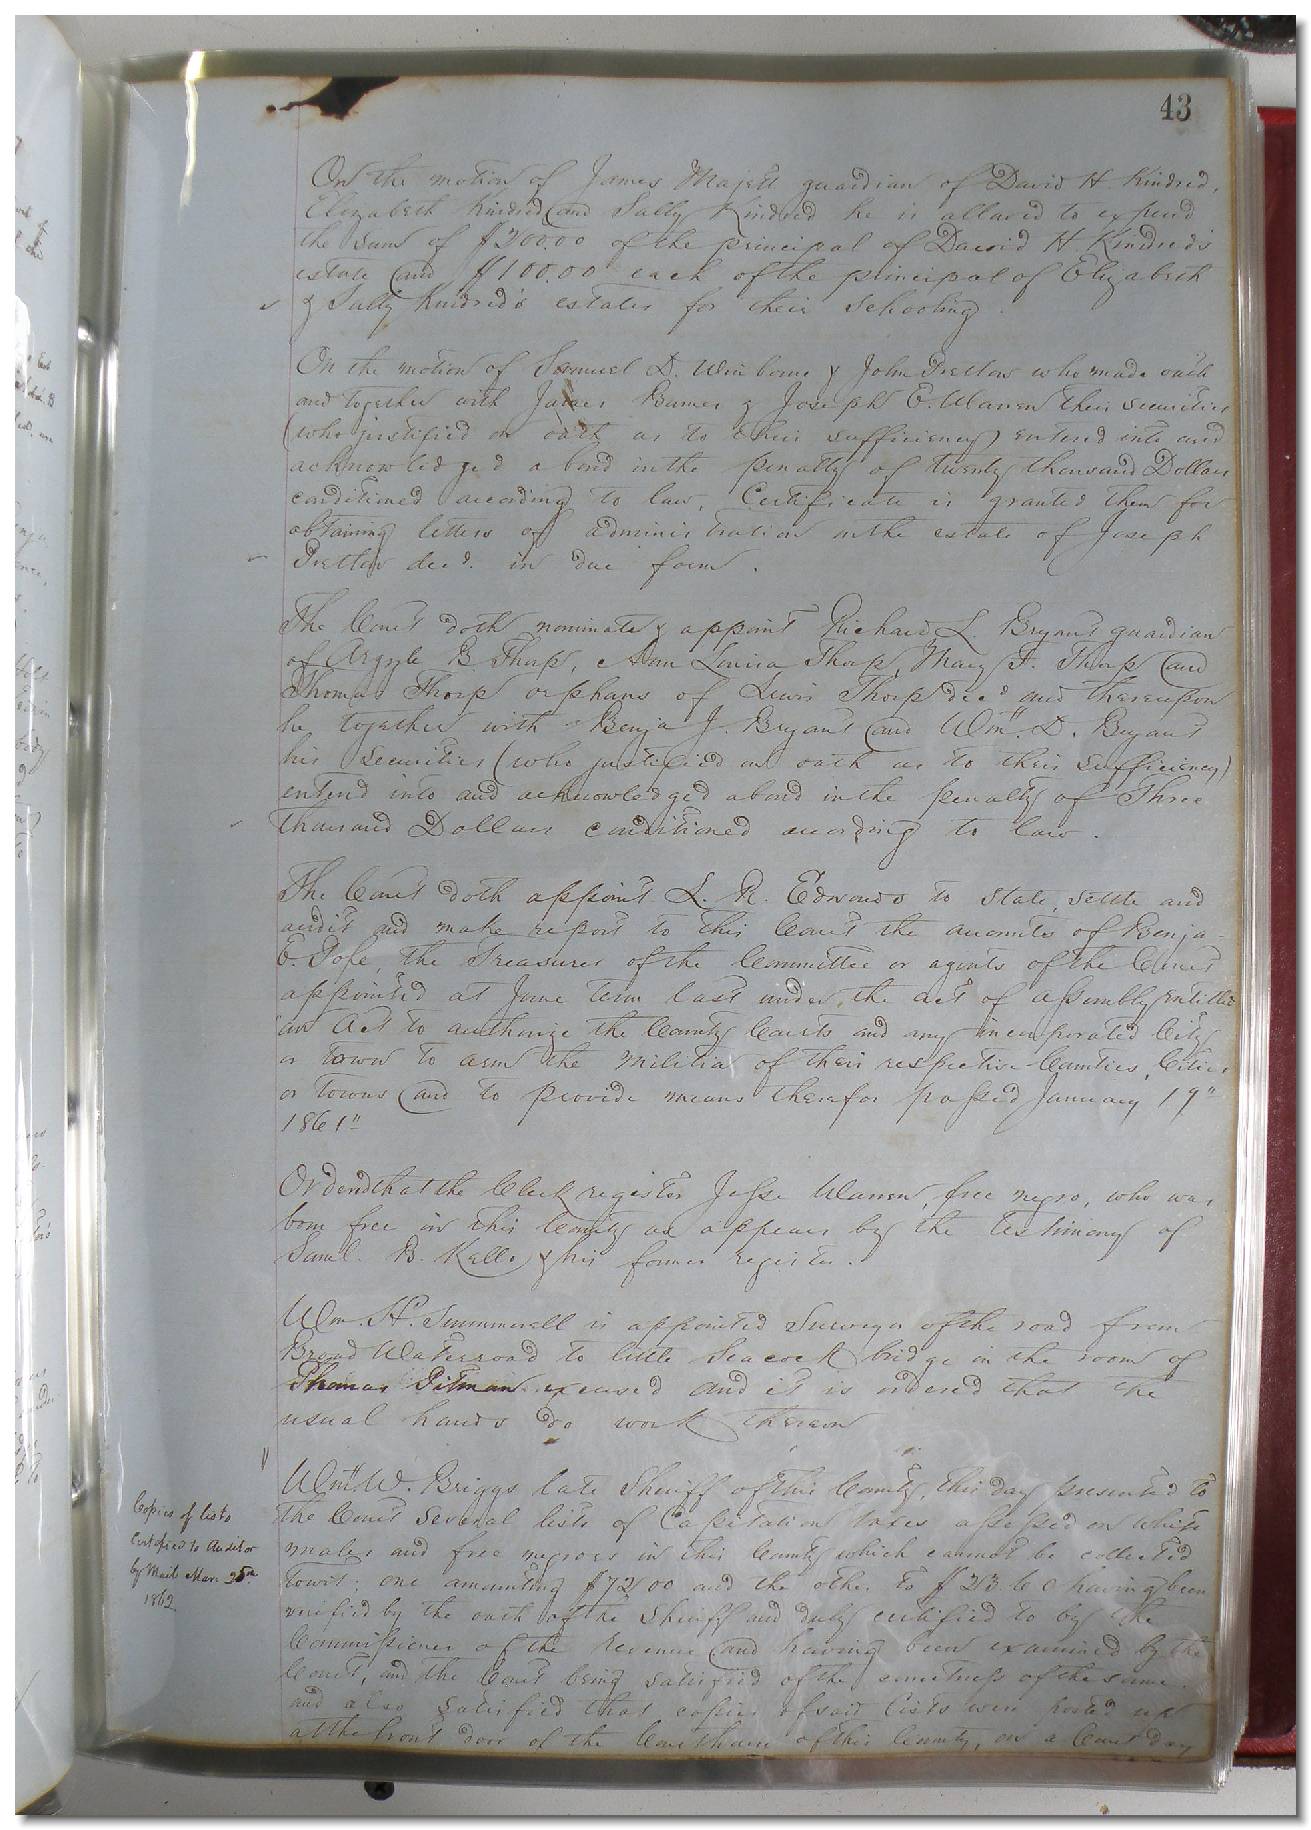 43
On the motion of James Majett guardian of David H Kindred,
Elizabeth Kindred and Sally Kindred he is allowed to expend
the sum of $200.00 of the principal of David H Kindred's
estate and $100.00 each of the principal of Elizabeth
& Sally Kindred's estates for their schooling.
On the motion of Samuel D. Winborne & John Pretlow who made oath
and together with James Barnes & Joseph E. Warren their securities
(who justified on oath as to their sufficiency) entered into and
acknowledged a bond in the penalty of twenty thousand Dollars
conditioned according to law, Certificate is granted them for
obtaining letters of administration on the estate of Joseph
Pretlow decd. in due form.
The Court doth nominate & appoint Richard L. Bryant guardian
of Argyle B Thorp, Ann Louisa Thorp, Mary F. Thorp and
Thomas Thorp orphans of Lewis Thorp decd and thereupon
he together with Benja J. Bryant and Wm. D. Bryant
his securities (who justified on oath as to their sufficiency)
entered into and acknowledged a bond in the penalty of Three
thousand Dollars conditioned according to law.
The Court doth appoint L. R. Edwards to state, settle and
audit and make report to this Court the accounts of Benja
E. Pope, the Treasurer of the Committee or agents of the Court
appointed at June term last under the act of assembly entitled
"an Act to authorize the County Courts and any incorporated City
or town to arm the militia of their respective Counties, Cities
or towns and to provide means therefor passed January 19"
1861"
Ordered that the Clerk register Jesse Warren, free negro, who was
born free in this County as appears by the testimony of
Saml. B. Kello & his former register.
Wm H. Summerell is appointed Surveyor of the road from
Broad Water road to little Seacock bridge in the room of
Thomas Pitman excused and it is ordered that the
usual hands do work thereon
Wm W. Briggs late Sheriff of this County, this day presented to
the Court several lists of Capitation taxes assessed on white
males and free negroes in this County which cannot be collected
towit; one amounting $72.00 and the other to having been
verified by the oath of the Sheriff and duly certified to by the
Commissioner of the Revenue and having been examined by the
Court, and the Court being satisfied of the correctness of the same.
and also satisfied that copies of said lists were posted up
at the front door of the Courthouse of this County, on a Court day
Copies of lists
Certified to Auditor
by Mail Mar.
1862.